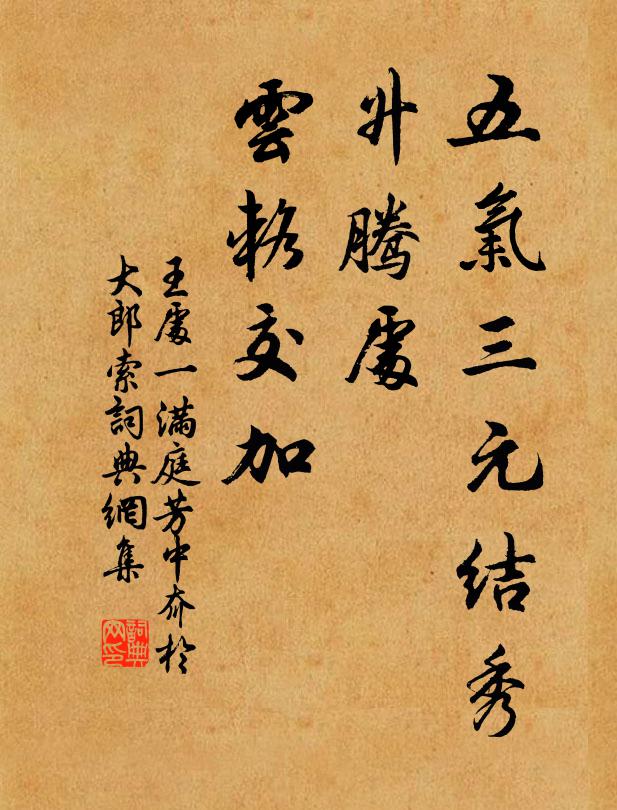 五氣三元結秀
升騰處
雲輅交加
王處一滿庭芳中夼於
大郎索詞典網集
詞典
网印